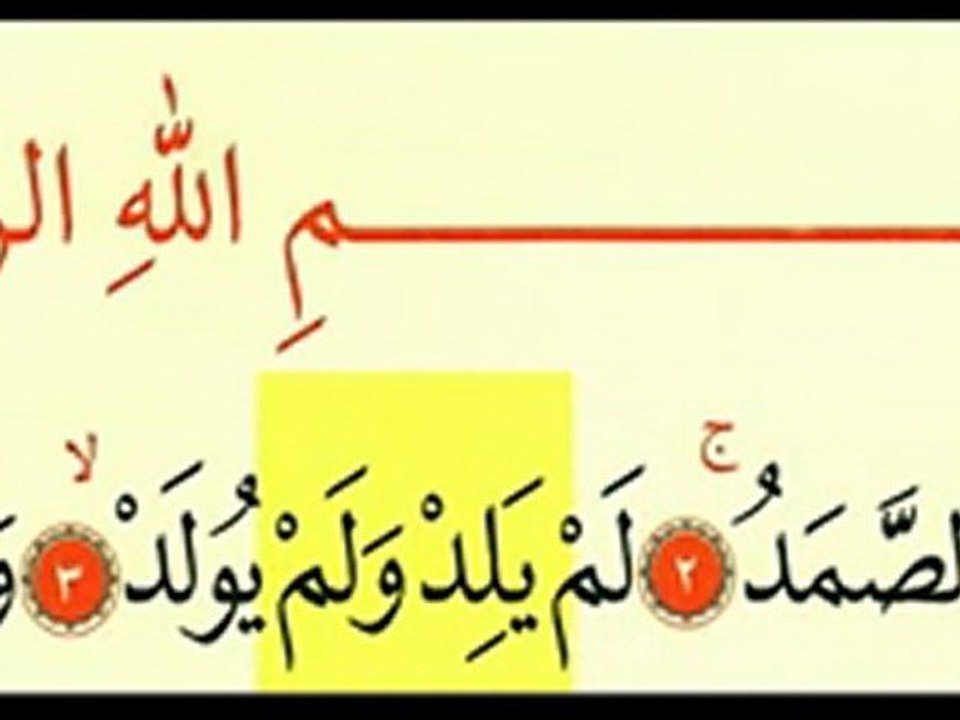 ـمِ اللّٰهِ الر
لصَّمَدُ ۚ ٢ لَمْ يَلِدْ وَلَمْ يُولَدْ ۙ ٣ وَ